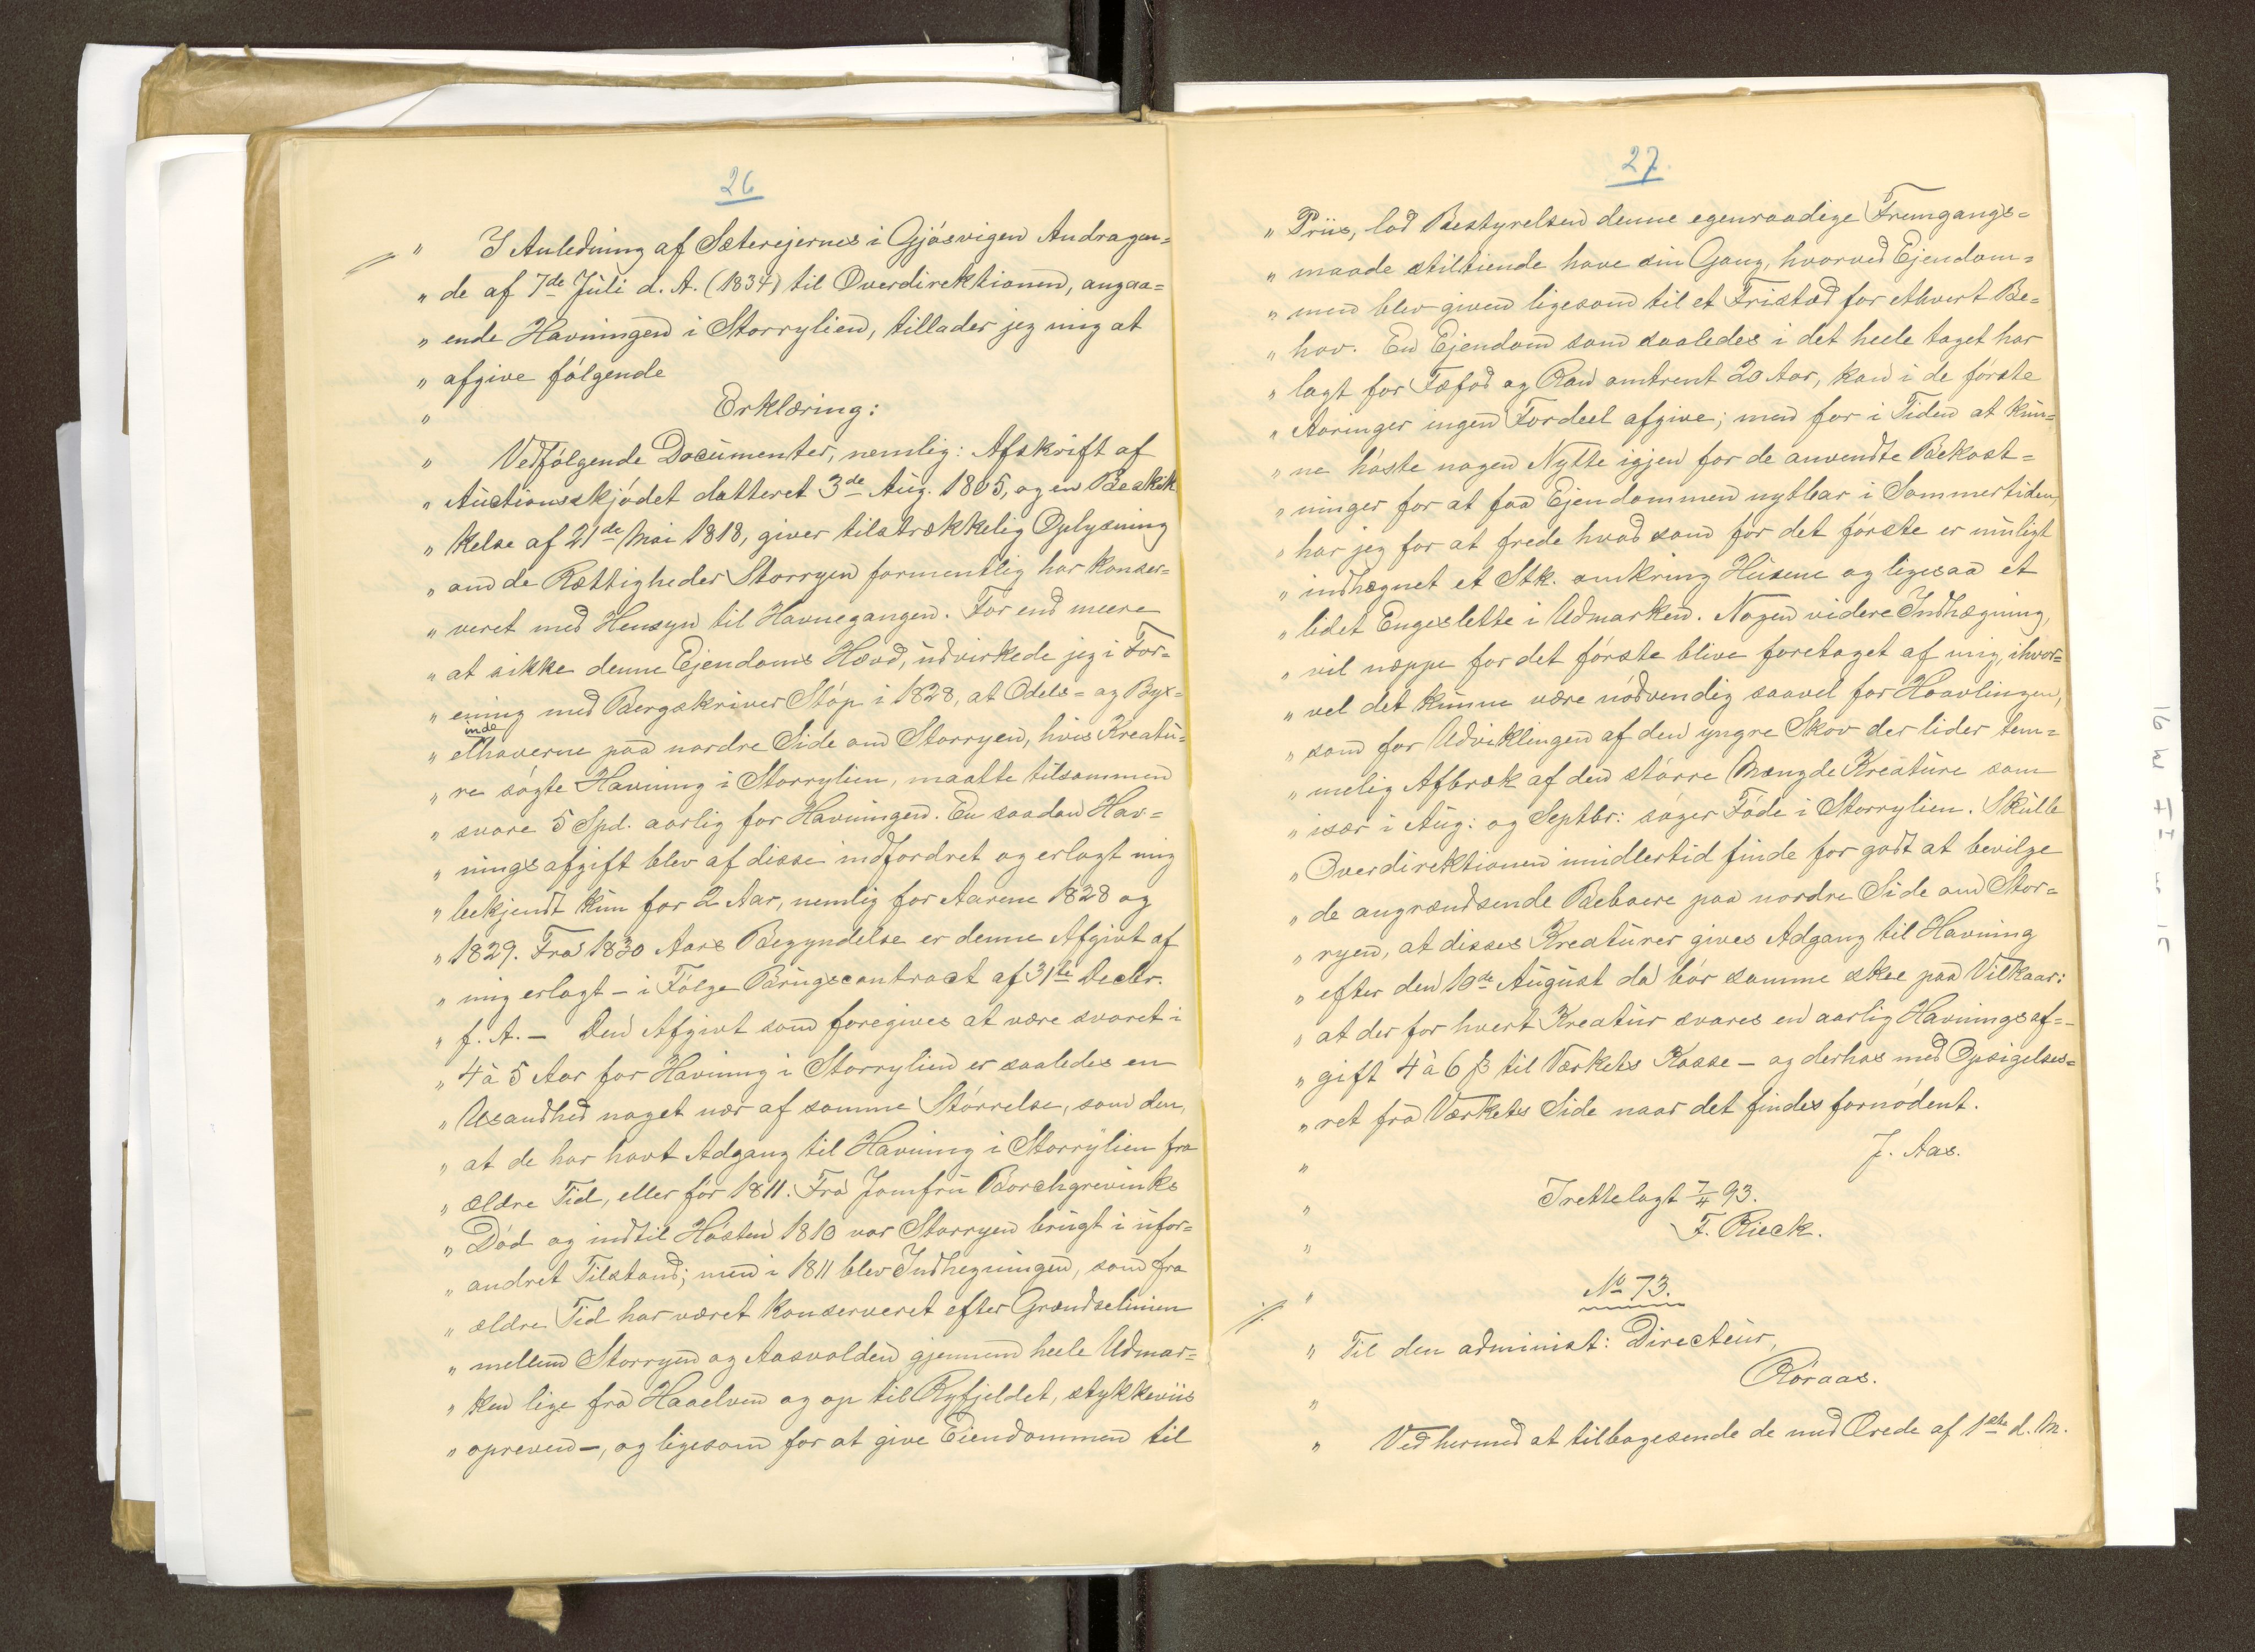 26
" I Anledning af Sæterejernes i Gjösvigen Andragen=
" de af 7de Juli d. A. (1834) til Overdirektionen, angaa=
" ende Havningen i Storrylien, tillader jeg mig at
" afgive fölgende
" Erklæring:
" Vedfölgende Documenter, nemlig: Afskrift af
" Auctionsskjödet datteret 3de Aug. 1805, og en Beskik
" kelse af 21de Mai 1818, giver tilstrækkelig Oplysning
" om de Rættigheder Storryen formentlig har konser=
" veret med Hensyn til Havnegangen. For end meere
" at sikke denne Ejendoms Hævd, udvirkede jeg i For=
" ening med Bergskriver Stöp i 1828, at Odels= og Byx=
inde
" elhaverne paa nordre Side om Storryen, hvis Kreatu=
" re sögte Havning i Storrylien, maatte tilsammen
" svare 5 Spd. aarlig for Havningen. En saadan Hav=
" nings afgift blev af disse indfordret og erlagt mig
" bekjendt kun for 2 Aar, nemlig for Aarene 1828 og
" 1829. Fra 1830 Aars Begyndelse er denne Afgivt af
" mig erlagt – i Fölge Brugscontract af 31te Decbr.
" f. A. – Den Afgivt som foregives at være svaret i
" 4 à 5 Aar for Havning i Storrylien er saaledes en
" Usandhed noget nær af samme Störrelse, som den,
" at de har havt Adgang til Havning i Storrylien fra
" ældre Tid, eller för 1811. Fra Jomfru Borchgrevinks
" Död og indtil Hösten 1810 var Storryen brugt i ufor=
" andret Tilstand; men i 1811 blev Indhegningen, som fra
" ældre Tid har været konserveret efter Grændselinien
" mellem Storryen og Aasvolden gjennem heele Udmar=
" ken lige fra Haaelven og op til Ryfjeldet, stykkeviis
" opreven –, og ligesom for at give Eiendommen til
27.
" Priis, lod Bestyrelsen denne egenraadige Fremgangs=
" maade stiltiende have sin Gang, hvorved Ejendom=
" men blev given ligesom til et Fristed for ethvert Be=
" hov. En Ejendom som saaledes i det heele taget har
" lagt for Fæfod og Ran omtrent 20 Aar, kan i de förste
" Aaringer ingen Fordeel afgive; men for i Tiden at kun=
" ne höste nogen Nytte igjen for de anvendte Bekost=
" ninger for at faa Ejendommen nytbar i Sommertiden,
" har jeg for at frede hvad som for det förste er muligt
" indhægnet et Stk. omkring Husene og ligesaa et
" lidet Engeslette i Udmarken. Nogen videre Indhægning,
" vil næppe for det förste blive foretaget af mig, ihvor=
" vel det kunne være nödvendig saavel for Haavlingen,
" som for Udviklingen af den yngre Skov der lider tem=
" melig Afbræk af den större Mængde Kreature som
" især i Aug: og Septbr: söger Föde i Storrylien. Skulle
" Overdirektionen imidlertid finde for godt at bevilge
" de angrændsende Beboere paa nordre Side om Stor=
" ryen, at disses Kreaturer gives Adgang til Havning
" efter den 10de August da bör samme skee paa Vilkaar:
" at der for hvert Kreatur svares en aarlig Havningsaf=
" gift 4 à 6 β til Værkets Kasse – og derhos med Opsigelses=
" ret fra Værkets Side naar det findes fornödent.
" J. Aas.
" Irettelagt 7/4 93.
" F. Rieck.
" No 73.
" Til den administ: Directeur,
" Röraas.
" Ved hermed at tilbagesende de med Ærede af 1ste d. M.